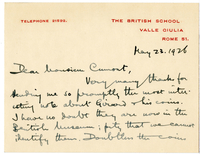 TELEPHONE 31923.
THE BRITISH SCHOOL
VALLE GIULIA
ROME 51.
May 23. 1926
Dear Monsieur Cumont,
Very many thanks for
sending me so promptly the most inter-
esting note about Girard & his coins.
I have no doubt they are now in the
British Museum; pity that we cannot
identify them. Doubtless the coin